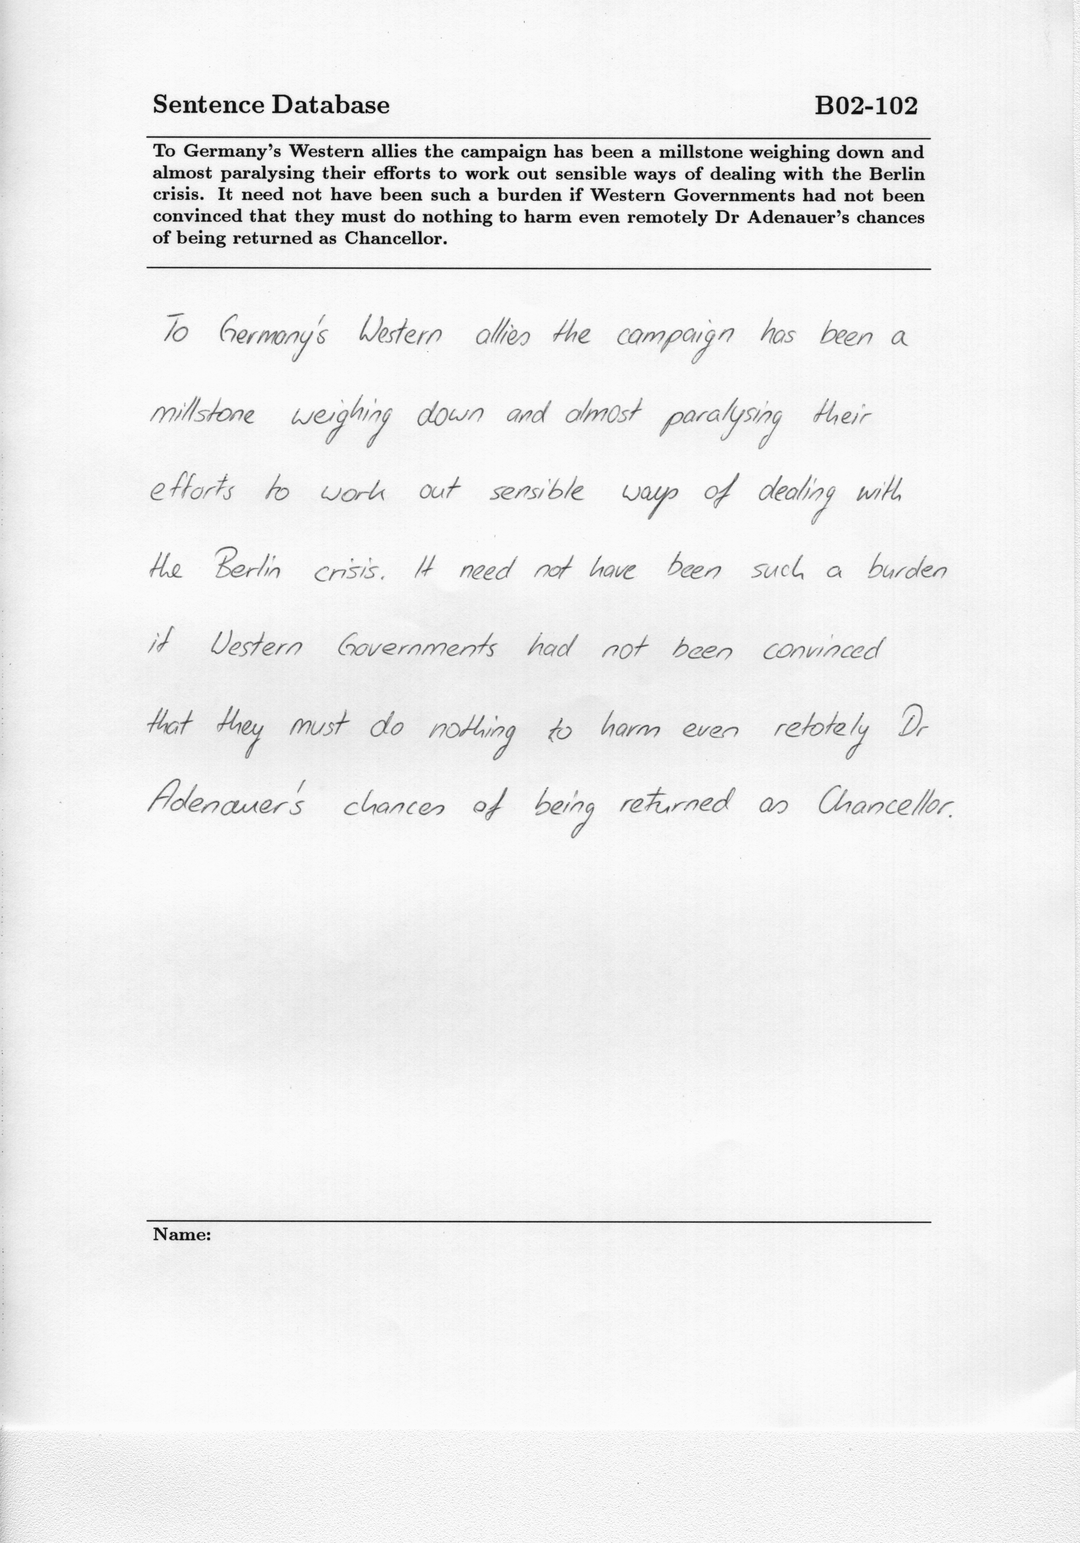 Sentence Database B02-102
To Germany's Western allies the campaign has been a millstone weighing down and
almost paralysing their efforts to work out sensible ways of dealing with the Berlin
crisis. It need not have been such a burden if Western Governments had not been
convinced that they must do nothing to harm even remotely Dr Adenauer's chances
of being returned as Chancellor.
To Germany's Western allies the campaign has been a
millstone weighing down and almost paralysing their
efforts to work out sensible ways of dealing with
the Berlin crisis. It need not have been such a burden
if Western Governments had not been convinced
that they must do nothing to harm even retotely Dr
Adenauer's chances of being returned as Chancellor.
Name: